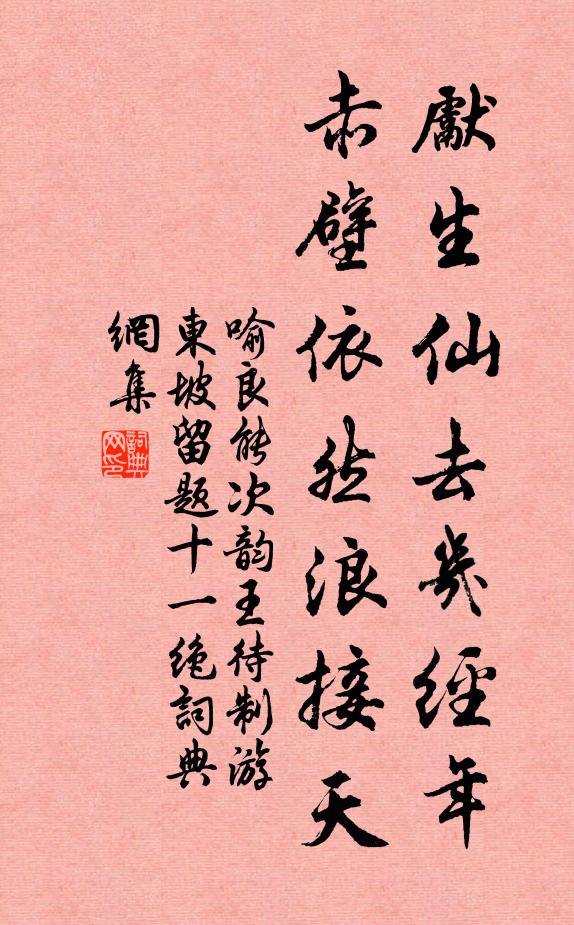 獻生仙去幾經年
赤壁依然浪接天
喻良能次韵王待制游
東坡留題十一絶詞典
網集
詞典网印